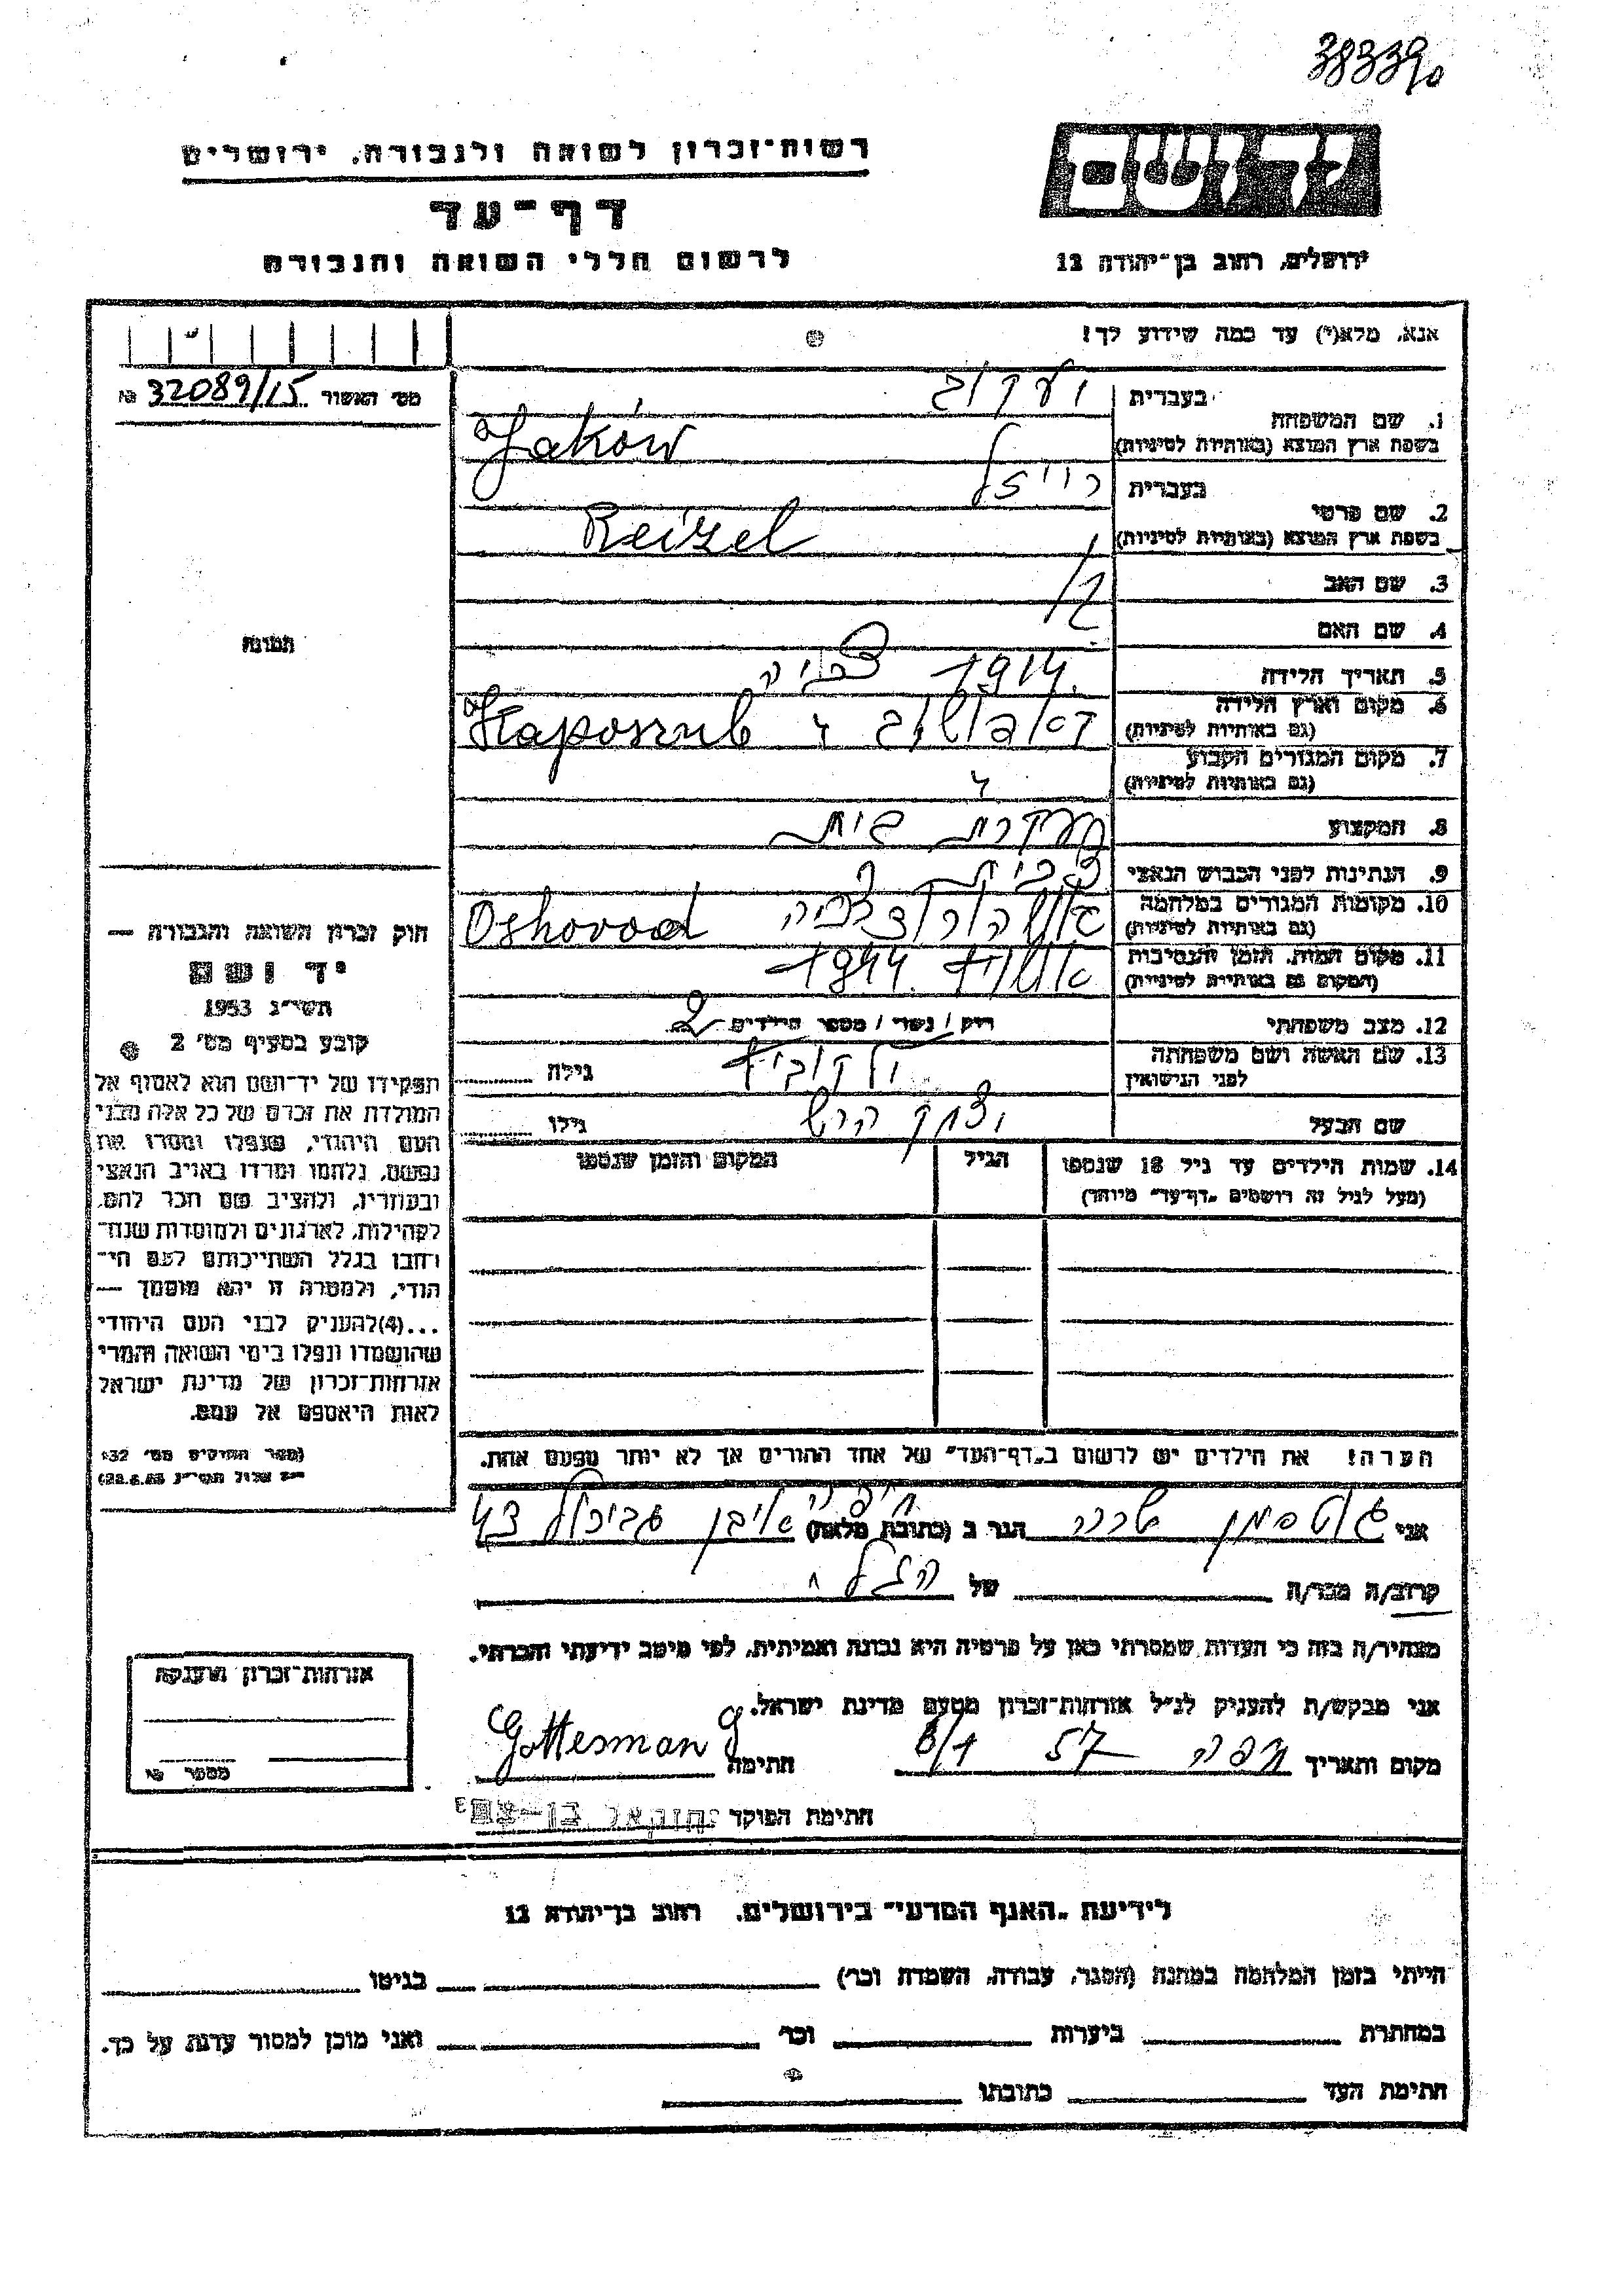 383390
יד ושם
רשות-זכרון לשואה ולגבורה, ירושלים
דף-עד
לרשום חללי השואה והגבורה
ירושלים, רחוב בן-יהודה 12
אנא, מלא(י) עד כמה שידוע לך!
מס' האשור № 32089/15
1. שם המשפחה
בעברית יעקוב
בשפת ארץ המוצא (באותיות לטיניות) Jaków
2. שם פרטי
בעברית רייזל
בשפת ארץ המוצא (באותיות לטיניות) Reizel
3. שם האב
4. שם האם
5. תאריך הלידה 1914
6. מקום וארץ הלידה
(גם באותיות לטיניות)
7. מקום המגורים הקבוע
(גם באותיות לטיניות)
8. המקצוע עקרת בית
9. הנתינות לפני הכבוש הנאצי
10. מקומות המגורים במלחמה
(גם באותיות לטיניות)
11. מקום המות, הזמן והנסיבות אושויץ 1944
(המקום גם באותיות לטיניות)
12. מצב משפחתי רוק / נשוי / מספר הילדים 2
13. שם האשה ושם משפחתה
לפני הנישואין גילה
שם הבעל יצחק הרש גילו
14. שמות הילדים עד גיל 18 שנספו
(מעל לגיל זה רושמים "דף-עד" מיוחד)
הגיל
המקום והזמן שנספו
הערה! את הילדים יש לרשום ב"דף-העד" של אחד ההורים אך לא יותר מפעם אחת.
תמונה
חוק זכרון השואה והגבורה —
יד ושם
תשי"ג 1953
קובע בסעיף מס' 2
תפקידו של יד-ושם הוא לאסוף אל
המולדת את זכרם של כל אלה מבני
העם היהודי, שנפלו ומסרו את
נפשם, נלחמו ומרדו באויב הנאצי
ובעוזריו, ולהציב שם וזכר להם,
לקהילות, לארגונים ולמוסדות שנח-
רבו בגלל השתייכותם לעם הי-
הודי, ולמטרה זו יהא מוסמך —
...(4)להעניק לבני העם היהודי
שהושמדו ונפלו בימי השואה והמרי
אזרחות-זכרון של מדינת ישראל
לאות היאספם אל עמם.
(ספר החוקים מס' 132
אני גוטסמן שרה הגר ב (כתובת מלאה) חיפה
קרוב/ה מכר/ה של הנ"ל
מצהיר/ה בזה כי העדות שמסרתי כאן על פרטיה היא נכונה ואמיתית, לפי מיטב ידיעתי והכרתי.
אני מבקש/ת להעניק לנ"ל אזרחות-זכרון מטעם מדינת ישראל.
מקום ותאריך חיפה חתימה Gottesman
חתימת הפוקד
אזרחות-זכרון מוענקת
מספר №
לידיעת "האגף המדעי" בירושלים, רחוב בן-יהודה 12
הייתי בזמן המלחמה במחנה (הסגר, עבודה, השמדה וכו') בגיטו
במחתרת ביערות וכו' ואני מוכן למסור עדות על כך.
חתימת העד כתובתו